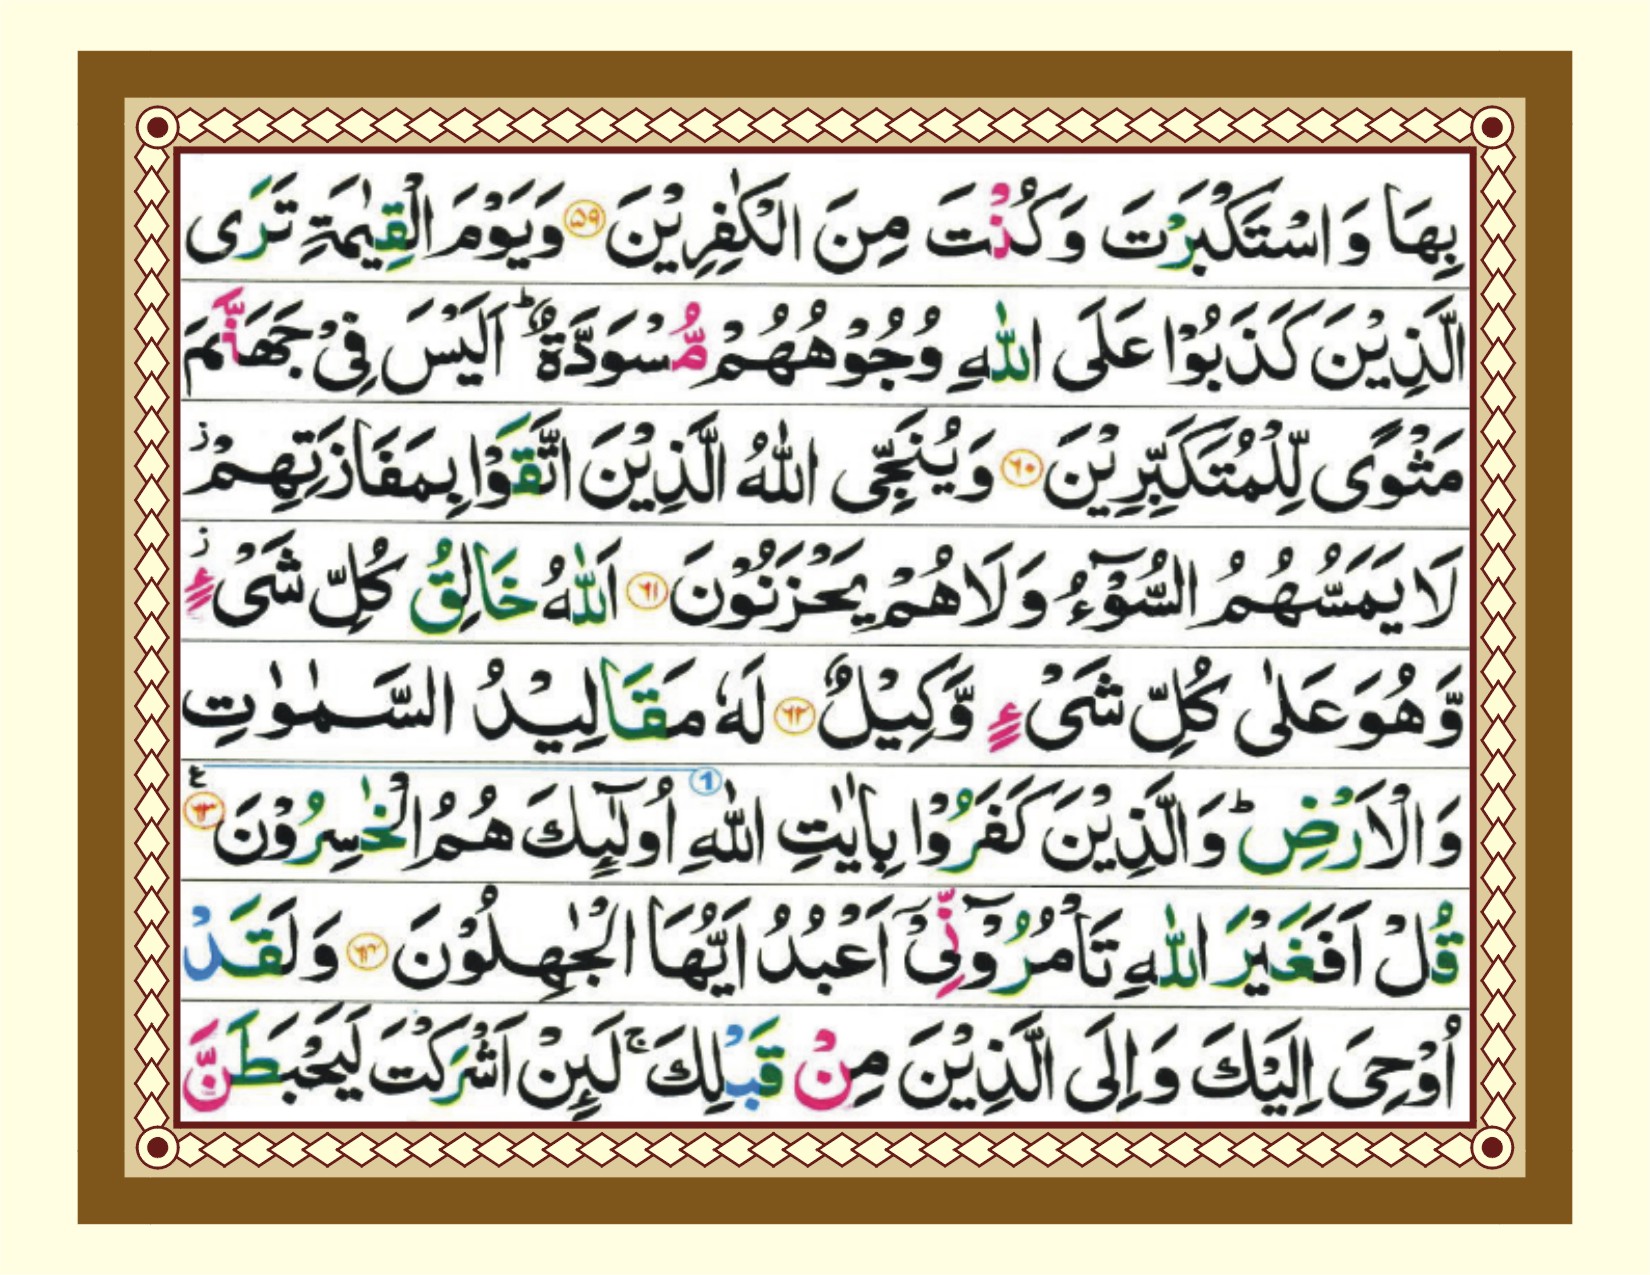 بِهَا وَ اسْتَكْبَرْتَ وَ كُنْتَ مِنَ الْكٰفِرِیْنَ ۵۹ وَ یَوْمَ الْقِیٰمَةِ تَرَی
الَّذِیْنَ كَذَبُوْا عَلَی اللّٰهِ وُجُوْهُهُمْ مُّسْوَدَّةٌ ؕ اَلَیْسَ فِیْ جَهَنَّمَ
مَثْوًی لِّلْمُتَكَبِّرِیْنَ ۶۰ وَ یُنَجِّی اللّٰهُ الَّذِیْنَ اتَّقَوْا بِمَفَازَتِهِمْ ز
لَا یَمَسُّهُمُ السُّوْٓءُ وَ لَا هُمْ یَحْزَنُوْنَ ۶۱ اَللّٰهُ خَالِقُ كُلِّ شَیْءٍ
وَّ هُوَ عَلٰی كُلِّ شَیْءٍ وَّكِیْلٌ ۶۲ لَهٗ مَقَالِیْدُ السَّمٰوٰتِ
وَ الْاَرْضِ ؕ وَ الَّذِیْنَ كَفَرُوْا بِاٰیٰتِ اللّٰهِ 1 اُولٰٓىِٕكَ هُمُ الْخٰسِرُوْنَ ۶۳ ع
قُلْ اَفَغَیْرَ اللّٰهِ تَاْمُرُوْٓنِّیْۤ اَعْبُدُ اَیُّهَا الْجٰهِلُوْنَ ۶۴ وَ لَقَدْ
اُوْحِیَ اِلَیْكَ وَ اِلَی الَّذِیْنَ مِنْ قَبْلِكَ ۚ لَىِٕنْ اَشْرَكْتَ لَیَحْبَطَنَّ